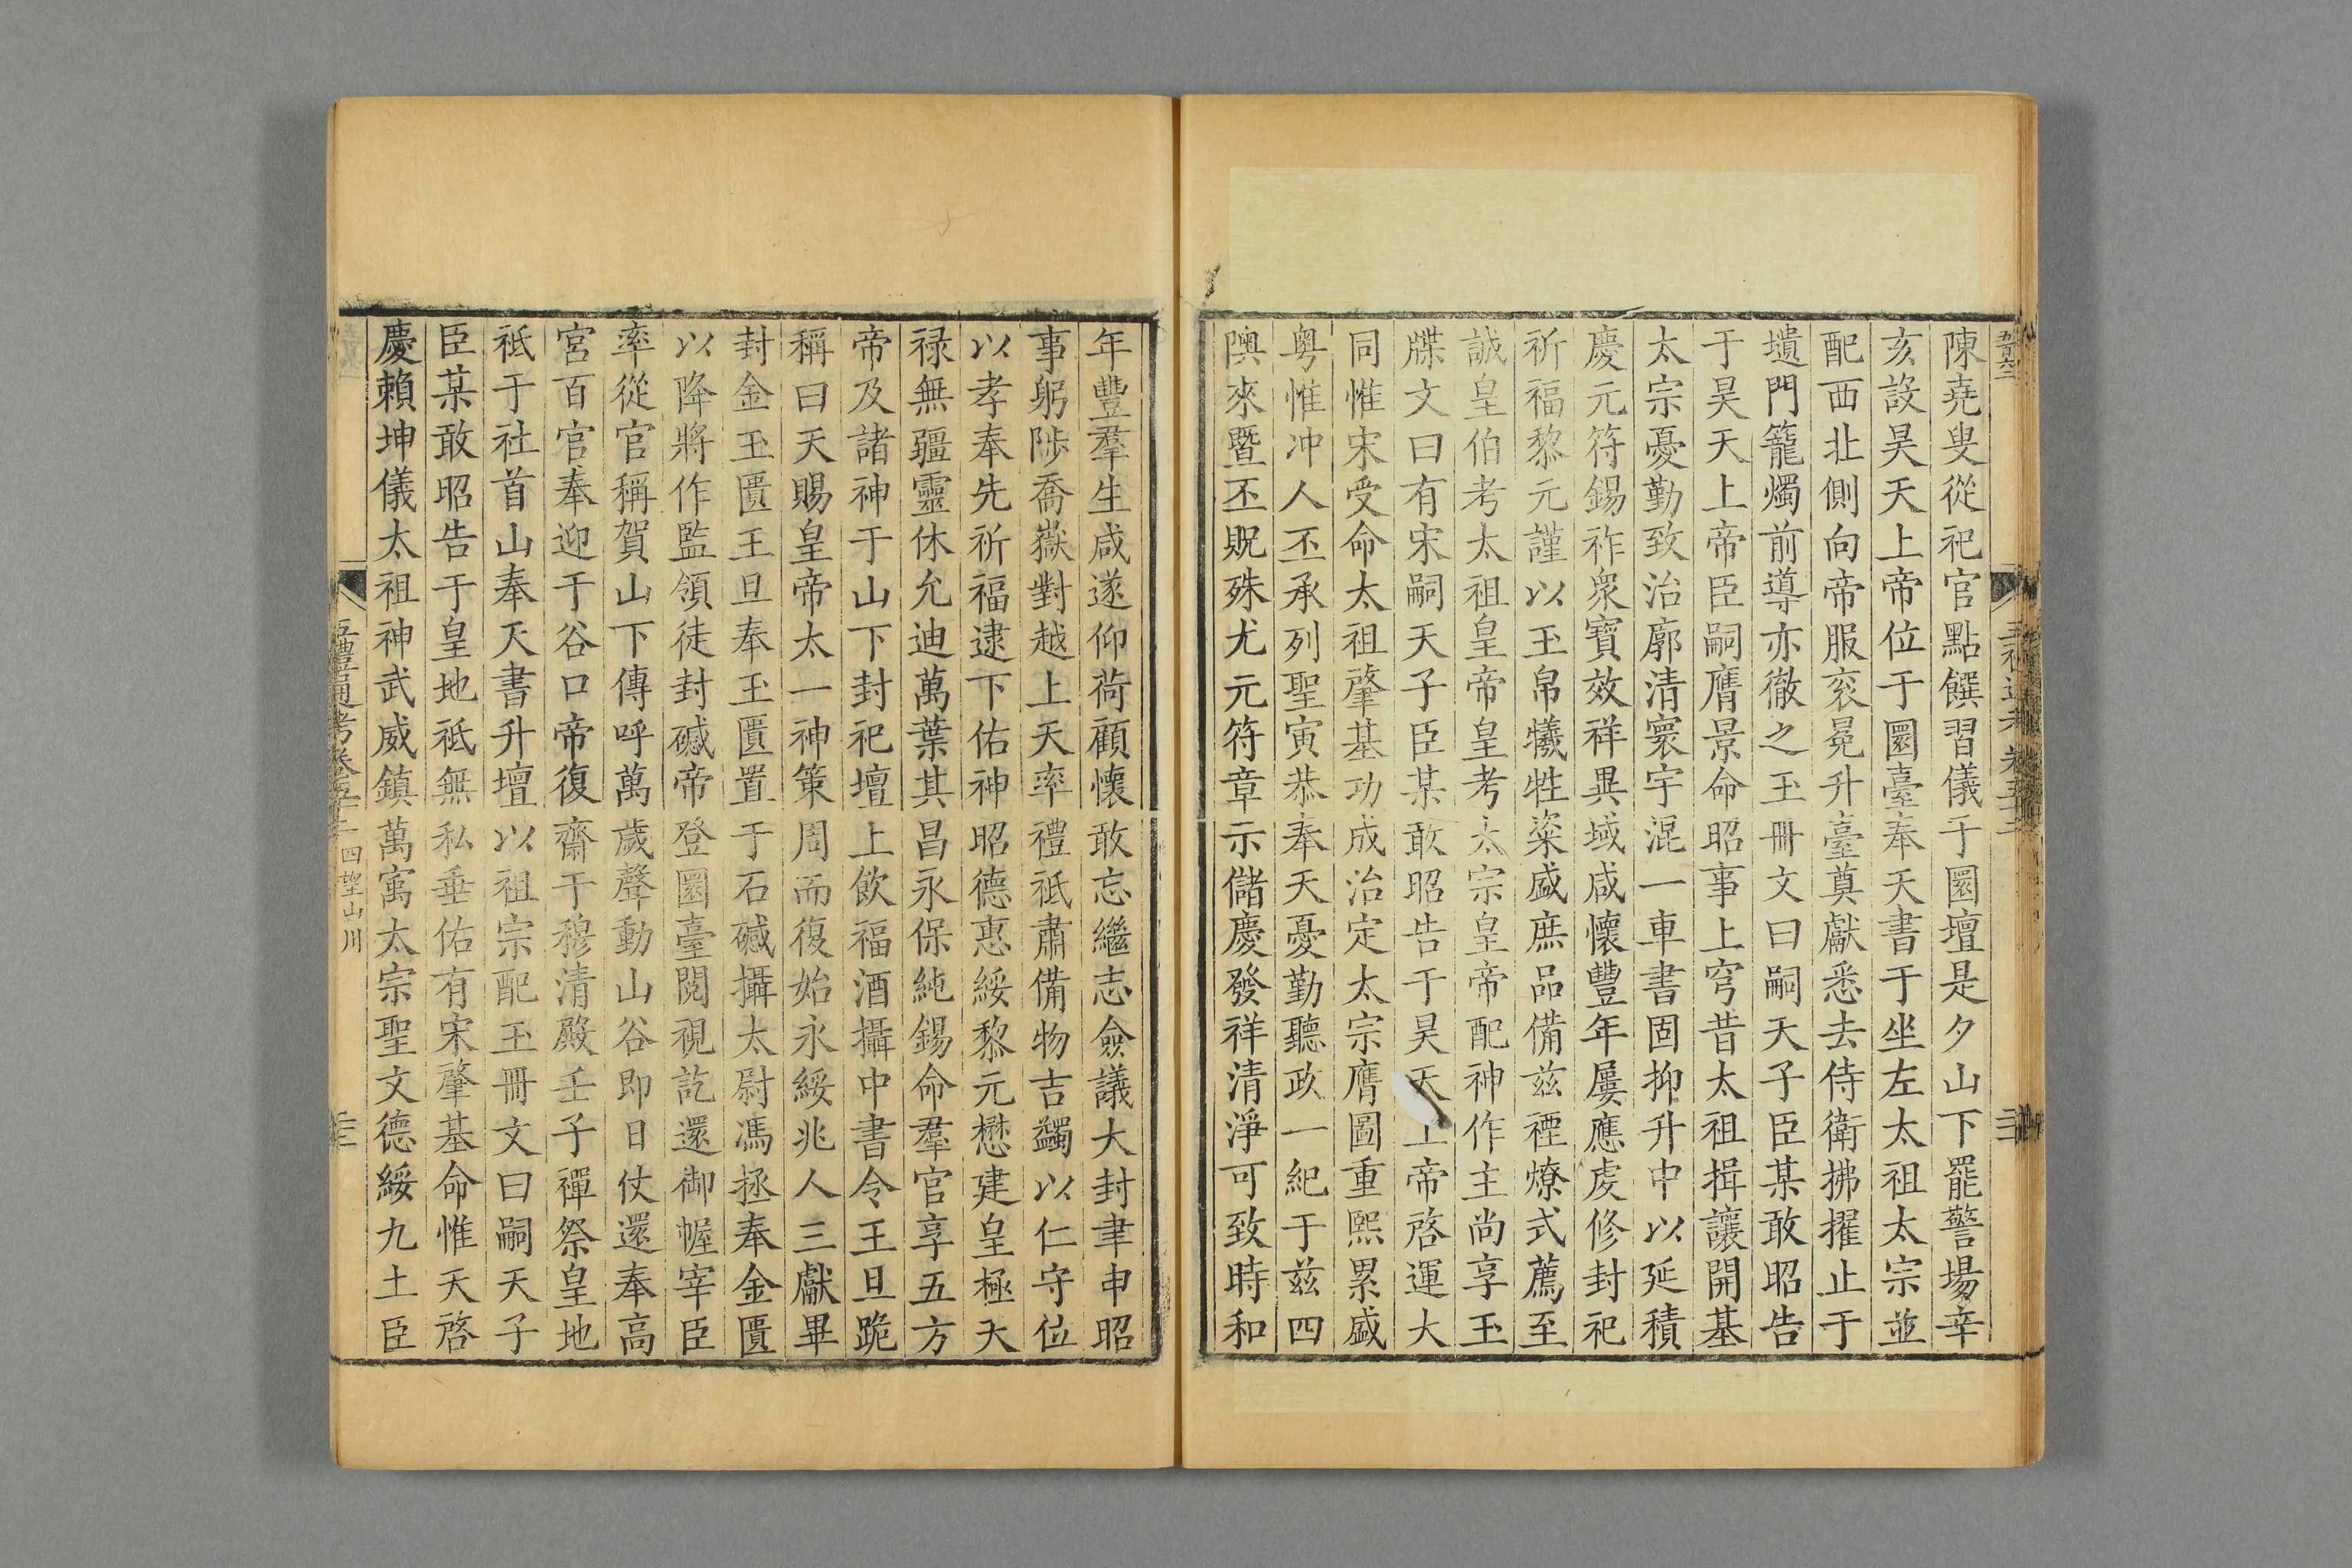 陳堯叟從祀官點饌習儀于圜壇是夕山下罷警場辛
亥設昊天上帝位于圜臺奉天書于坐左太祖太宗並
配西北側向帝服袞冕升臺奠獻悉去侍衛拂擢止于
壝門籠燭前導亦徹之玉冊文曰嗣天子臣某敢昭告
于昊天上帝臣嗣膺景命昭事上穹昔太祖揖讓開基
太宗憂勤致治廓清寰宇混一車書固抑升中以延積
慶元符錫祚衆寶效祥異域咸懷豐年屢應虔修封祀
祈福黎元謹以玉帛犧牲粢盛庶品備茲禋燎式薦至
誠皇伯考太祖皇帝皇考太宗皇帝配神作主尚享玉
牒文曰有宋嗣天子臣某敢昭告于昊天上帝啓運大
同惟宋受命太祖肇基功成治定太宗膺圖重熙累盛
粤惟冲人丕承列聖寅恭奉天憂勤聽政一紀于茲四
隩來暨丕貺殊尤元符章示儲慶發祥清淨可致時和
年豐羣生咸遂仰荷顧懷敢忘繼志僉議大封聿申昭
事躬陟喬嶽對越上天率禮祇肅備物吉蠲以仁守位
以孝奉先祈福逮下佑神昭德惠綏黎元懋建皇極天
禄無疆靈休允迪萬葉其昌永保純錫命羣官享五方
帝及諸神于山下封祀壇上飲福酒攝中書令王旦跪
稱曰天賜皇帝太一神策周而復始永綏兆人三獻畢
封金玉匱王旦奉玉匱置于石䃭攝太尉馮拯奉金匱
以降將作監領徒封䃭帝登圜臺閱視訖還御幄宰臣
率從官稱賀山下傳呼萬歲聲動山谷即日仗還奉高
宮百官奉迎于谷口帝復齋于穆清殿壬子禪祭皇地
祇于社首山奉天書升壇以祖宗配玉冊文曰嗣天子
臣某敢昭告于皇地祇無私垂佑有宋肇基命惟天啓
慶賴坤儀太祖神武威鎮萬寓太宗聖文德綏九土臣
四望山川